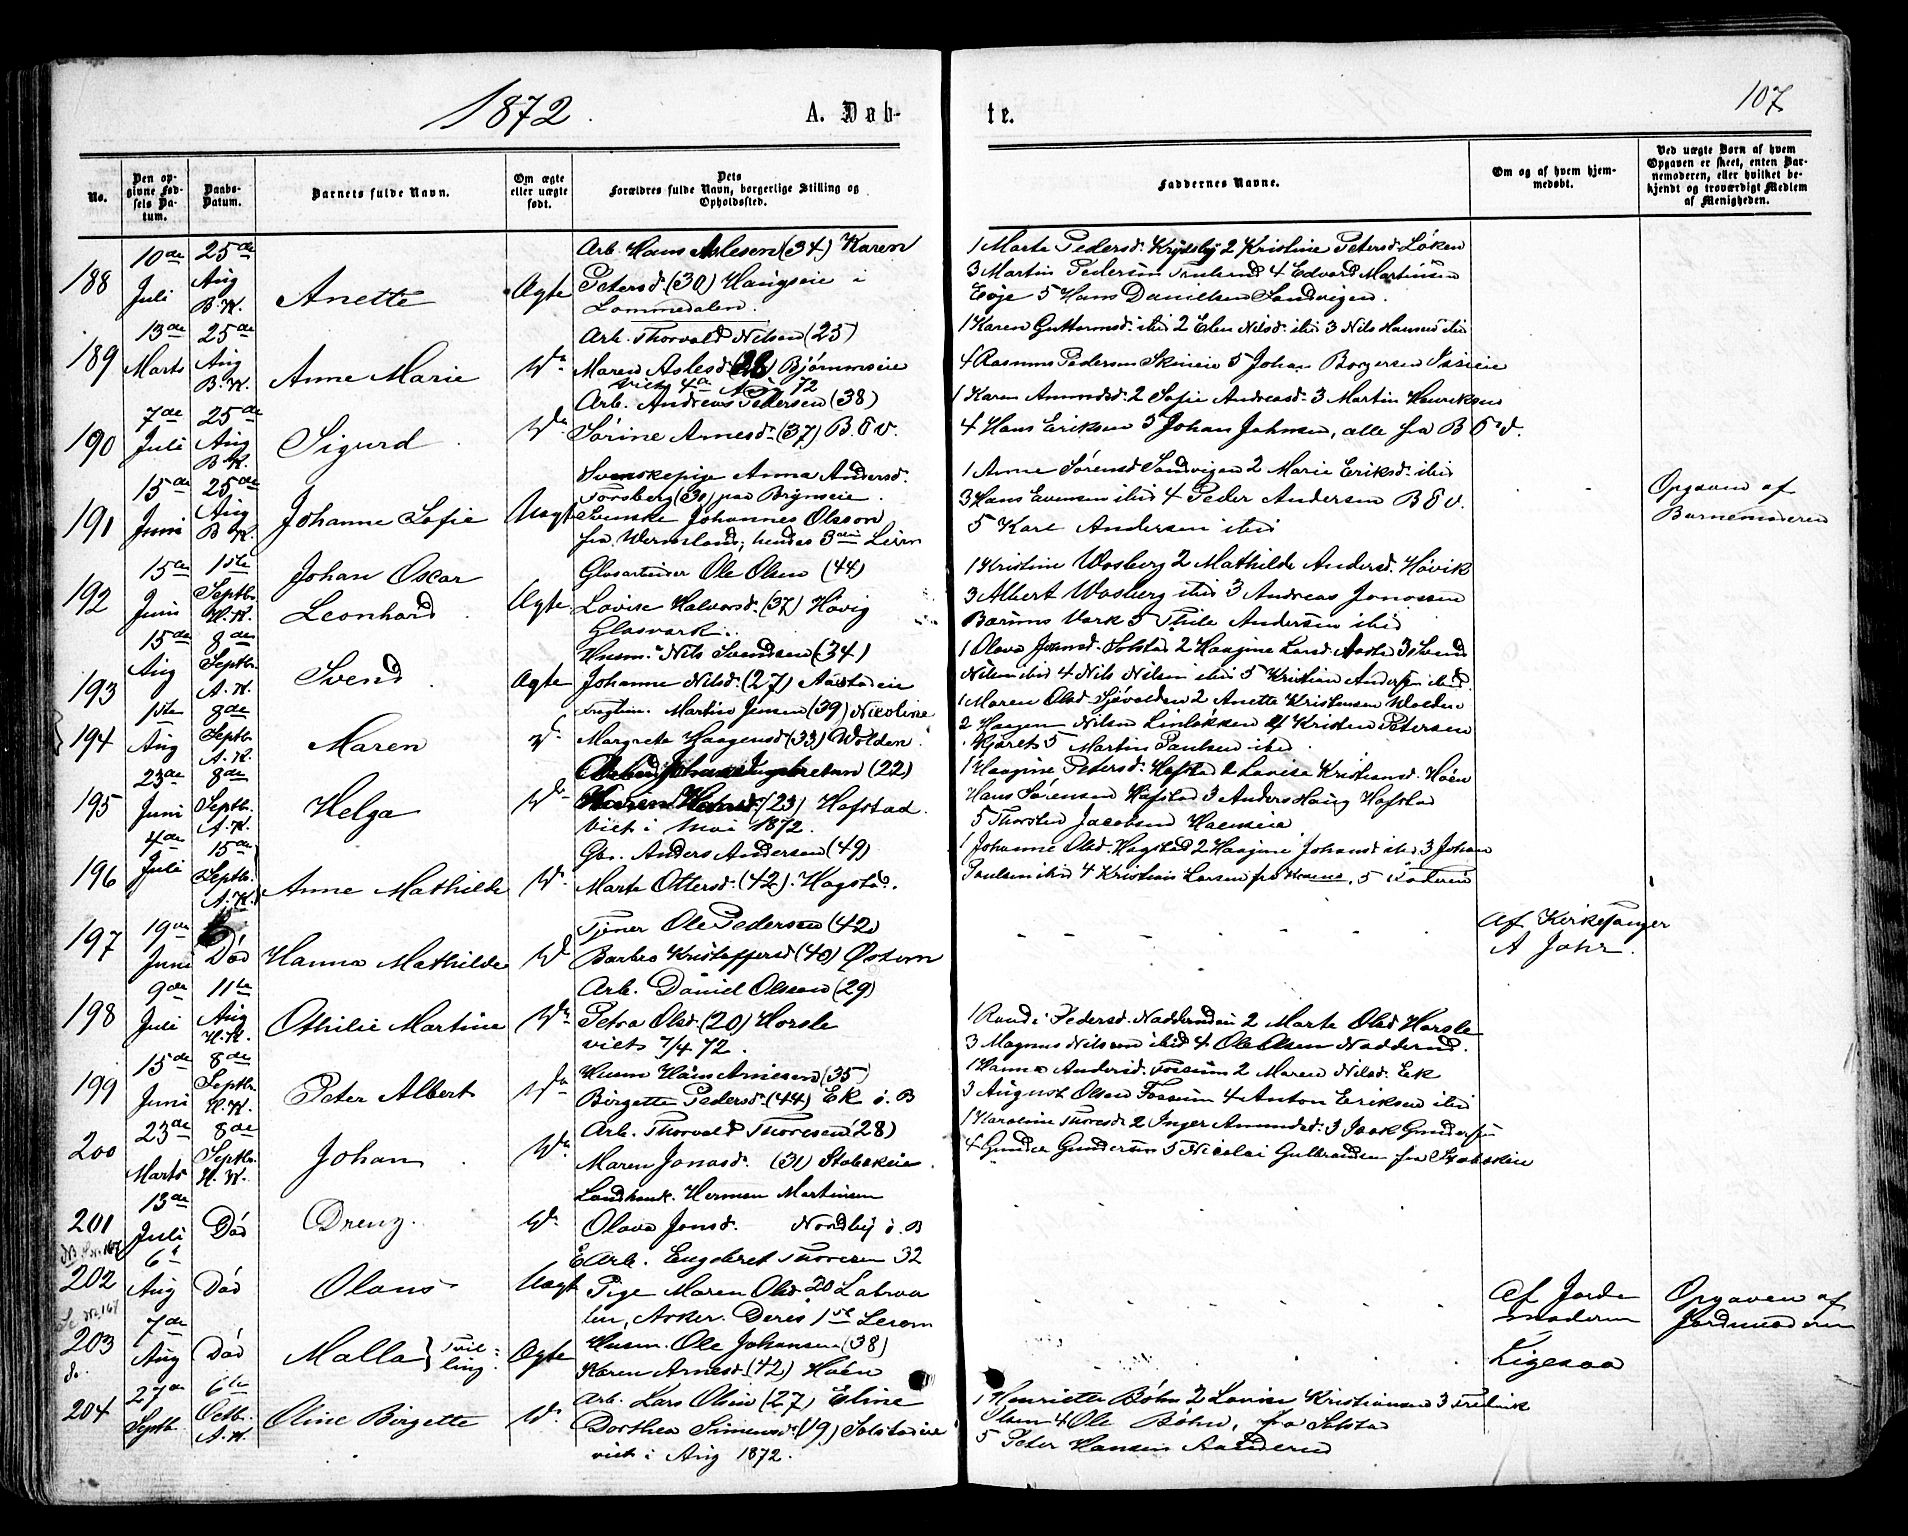 1872. A. Døb- te. 107
No.
Den opgivne Fødsels Datum.
Daabs-Datum.
Barnets fulde Navn.
Om ægte eller uægte født.
Dets Forældres fulde Navn, borgerlige Stilling og Opholdssted.
Faddernes Navne.
Om og af hvem hjemmedøbt.
Ved uægte Børn af hvem Opgaven er skeet, enten Barnemoderen, eller hvilket bekjendt og troværdigt Medlem af Menigheden.
188 10de Juli 25de Aug B.K. Anette Ægte
Arb. Hans Aslesen (34) Karen
Petersd. (30) Haugseie i
Lommedalen.
1 Marte Pedersd. 2 Kristine Petersd. Løken
3 Martin Pedersen 4 Edvard Martinsen
Eøje 5 Hans Danielsen Sandvigen.
189 13de Marts 25de Aug B.K. Anne Marie Do
Arb. Thorvald Nilsen (25)
Maren Aslesd. (26) Bjørnmseie
viet 4de 72
1 Karen Guttormsd. ibid 2 Elen Nilsd. ibid 3 Nils Hansen ibid
4 Rasmus Pedersen 5 Johan Borgersen
190 7de Juli 25de Aug B.K. Sigurd Do
Arb. Andreas Pedersen (38)
Sørine Arnesd. (37) B.V.
1 Karen Amundsd. 2 Sofie Andreasd. 3 Martin Henriksen
4 Hans Eriksen 5 Johan Johnsen, alle fra B V.
191 15de Juni 25de Aug B.K. Johanne Sofie Uægt
Svenskepige Anna Andersd.
Forsberg (30) paa Brynseie.
Svenske Johannes Olsson
fra Wermland; hendes 3die Leierm
1 Anne Sørensd. Sandvigen 2 Marie Eriksd. ibid
3 Hans Evensen ibid 4 Peder Andersen B V.
5 Karl Andersen ibid
Opgaven af
Barnemoderen
192 15de Juni 1ste Septbr. H.K. Johan Oscar
Leonhard Ægte
Glasarbeider Ole Olsen (44)
Lovise Halvorsd. (37) Høvig
Glasværk.
1 Kristine Wosberg 2 Mathilde Andersd. Høvik
3 Albert Wosberg ibid 3 Andreas Jonassen
Bærums Værk 5 Thile Andersen ibid
193 15de Aug 8de Septbr. A.K. Svend Ægte
Husm. Nils Svendsen (34)
Johanne Nilsd. (27) Aastadeie
1 Olava Jonsd. Solstad 2 Haagine Larsd. Aastad 3 Svend
Nilsen ibid 4 Nils Nilsen ibid 5 Kristian Andersen ibid.
194 1ste Aug 8de Septbr. A.K. Maren Do
Martin Jensen (39) Nicoline
Margrete Haagensd. (33) Wolden.
1 Maren Olsd. 2 Anette Kristensen Wolden
2 Haagen Nilsen 4 Kristen Petersen
5 Martin Paulsen ibid.
195 23de Juni 8de Septbr. A.K. Helga Do
Johan Ingebretsen (22)
Karen Hansd. (23) Hofstad.
Viet i Mai 1872.
1 Haagine Petersd. Hofstad 2 Lovise Kristiansd. Høen
Hans Sørensen Hofstad 3 Anders Haug Hofstad
5 Thorsten Jacobsen
196 4de Juli 15de Septbr. A.K. Anne Mathilde Do
Gbr. Anders Andersen (49)
Marte Ottersd. (42). Hogstad.
1 Johanne Olsd. Hogstad 2 Haagine Johansd. ibid 3 Johan
Paulsen ibid 4 Kristian Larsen fra
197 19de Juni Død Hanna Mathilde Do
Tjener Ole Pedersen (42)
Barbra Kristoffersd. (40) Østern
Af Kirkesanger
A Johr.
198 9de Juli 11te Aug H.K. Othilie Martine Do
Arb. Daniel Olsen (29)
Petra Olsd. (20) Horsle
viet 7/4 72.
1 Randi Pedersd. 2 Marte Olsd. Horsle
3 Magnus Nilsen ibid 4 Ole Olsen Nadderud.
199 15de Juni 8de Septbr. H.K. Peter Albert Do
Husm Hans Arnesen (35)
Birgette Pedersd. (44) Ek i. B
1 Hanna Andersd. Fossum 2 Maren Nilsd. Ek
3 August Olsen Fossum 4 Anton Eriksen ibid
200 23de Marts 8de Septbr. H.K. Johan Do
Arb. Thorvald Thoresen (28)
Maren Jonasd. (31) Stabækeie.
1 Karoline Thoresd. 2 Inger Amundsd. 3 Isak Gundersen
4 Gunder Gundersen 5 Nicolai Gulbrandsen fra Stabækeie
201 13de Juli Død Dreng. Do
Landhand. Herman Martinsen
Olava Jonsd. Nordby i. B
202 6te Aug Død Olaus Uægt
Arb. Engebret Thoresen 32
Pige Maren Olsd. 20
Aker. Deres 1ste Leierm
Af Jorde
moderen
Opgaven af
Jordmoderen
203 7de Aug Død Malla } Tvil-
ling. Ægte
Husm. Ole Johansen (38)
Karen Arnesd. (42) Høen
Ligesaa
204 27de Septbr. 6te Octbr. A.K. Oline Birgette Do
Arb. Lars Olsen (27) Eline
Dorthea Simensd. (19) Solstadeie
viet i Aug 1872.
1 Henriette Bøhn 2 Lovise Kristiansen 3 Fredrik
Olsen 4 Ole Bøhn, fra Solstad
5 Peter Hansen